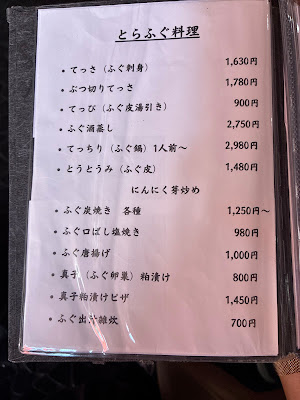 とらふぐ料理
・てっさ（ふぐ刺身） 1,630円
・ぶつ切りてっさ 1,780円
・てっぴ（ふぐ皮湯引き） 900円
・ふぐ酒蒸し 2,750円
・てっちり（ふぐ鍋）1人前〜 2,980円
・とうとうみ（ふぐ皮） 1,480円
にんにく芽炒め
・ふぐ炭焼き 各種 1,250円〜
・ふぐ口ばし塩焼き 980円
・ふぐ唐揚げ 1,000円
・真子（ふぐ卵巣）粕漬け 800円
・真子粕漬けピザ 1,450円
・ふぐ出汁雑炊 700円